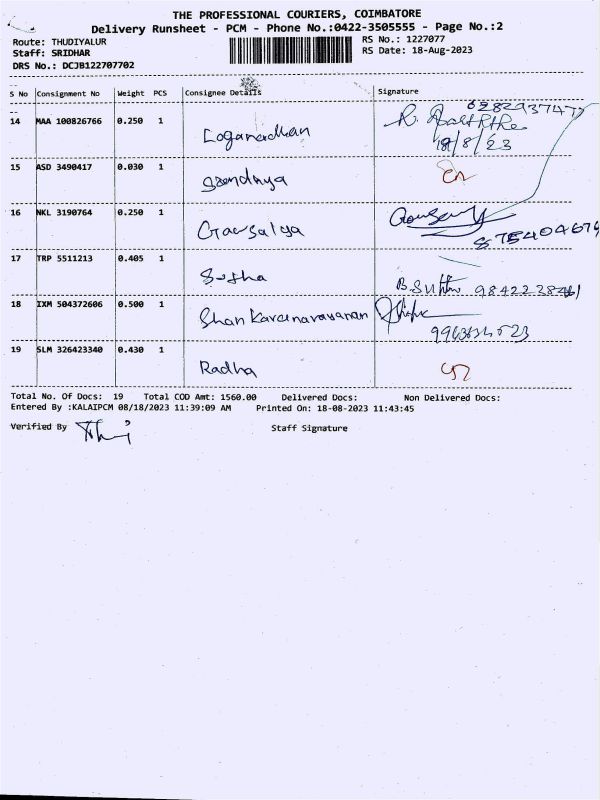 THE PROFESSIONAL COURIERS, COIMBATORE
Delivery Runsheet - PCM - Phone No.:0422-3505555 - Page No.:2
Route: THUDIYALUR
Staff: SRIDHAR
DRS No.: DCJB122707702
RS No.: 1227077
RS Date: 18-Aug-2023
S No Consignment No Weight PCS Consignee Details Signature
14 MAA 100826766 0.250 1 Loganadhan
18/8/23
15 ASD 3490417 0.030 1
16 NKL 3190764 0.250 1 Gowsalya
17 TRP 5511213 0.405 1 Sutha
B. Sutha
18 IXM 504372606 0.500 1 Shankaranarayanan
19 SLM 326423340 0.430 1 Radha
Total No. Of Docs: 19 Total COD Amt: 1560.00 Delivered Docs: Non Delivered Docs:
Entered By :KALAIPCM 08/18/2023 11:39:09 AM Printed On: 18-08-2023 11:43:45
Verified By Staff Signature